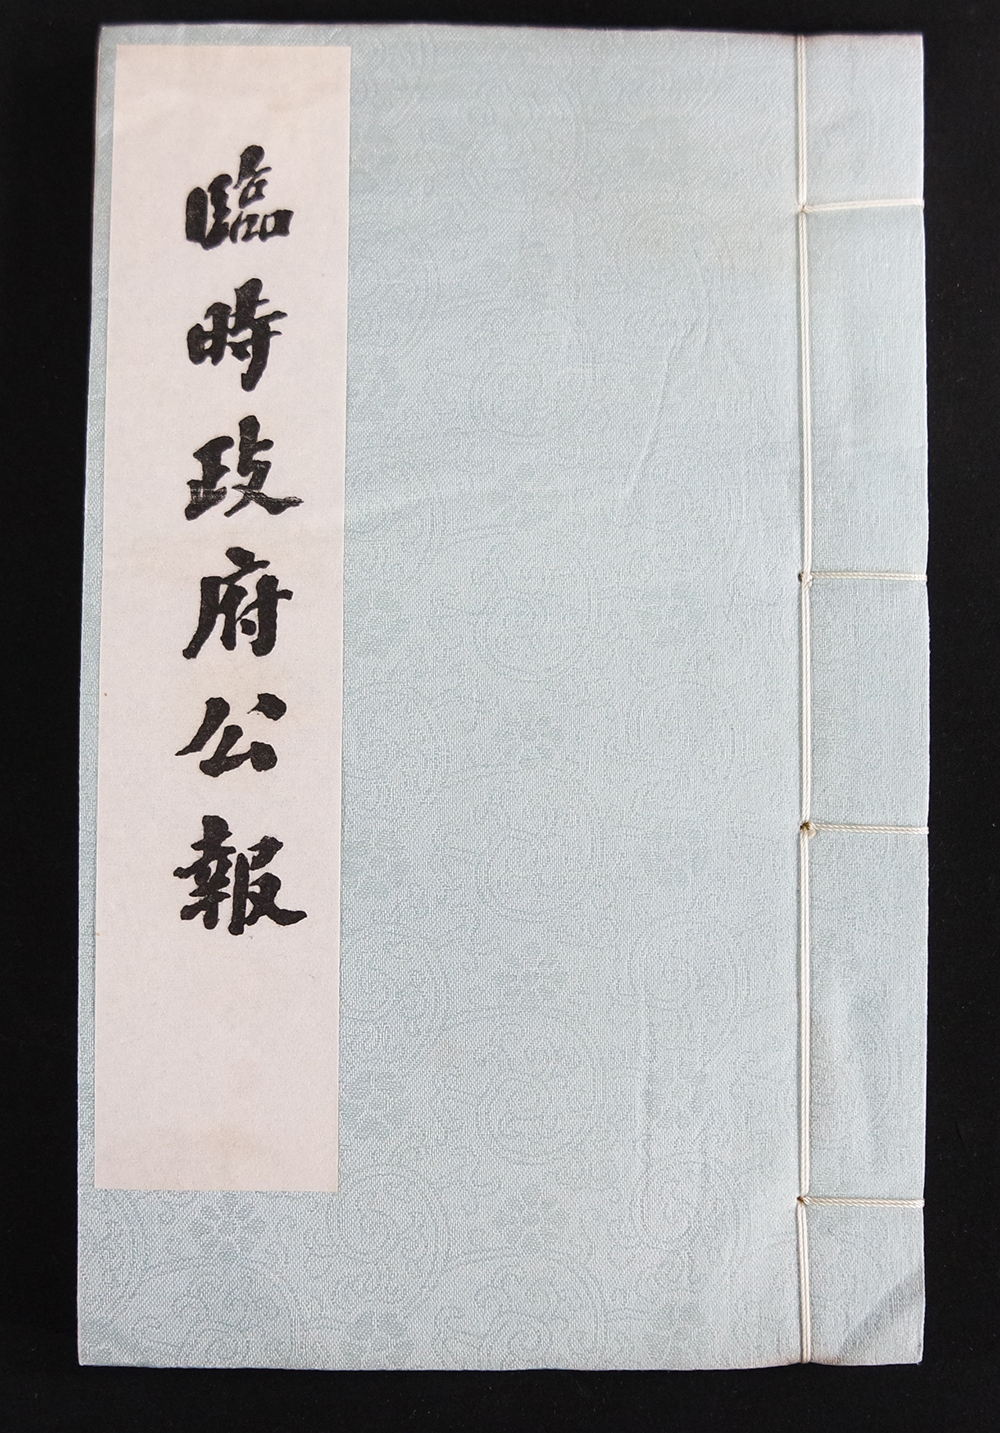 臨時政府公報